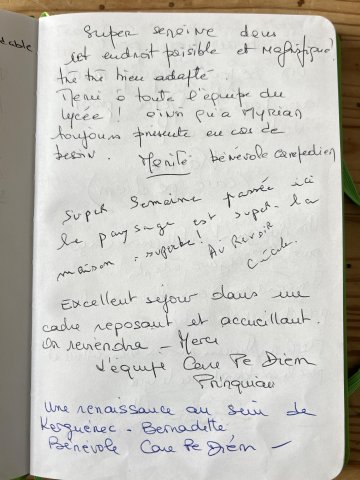 dable
Super semaine dans
cet endroit paisible et magnifique
très très bien adapté.
Merci à toute l'équipe du
lycée ! ainsi qu'à Myriam
toujours présente en cas de
besoin. bénévole carpediem
Super Semaine passée ici
le paysage est super. la
maison superbe !
Au Revoir
Cécile.
Excellent séjour dans un
cadre reposant et accueillant.
On reviendra - Merci
L'équipe Care Pe Diem
Prinquiau
Une renaissance au sein de
Kerguénec - Bernadette
Bénévole Care Pe Diém -